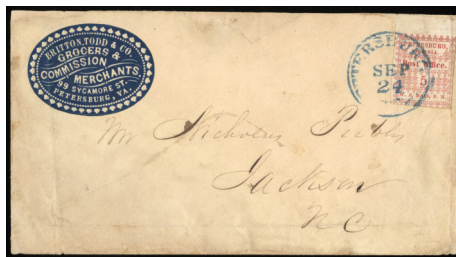 BRITTON, TODD & CO.
GROCERS &
COMMISSION
MERCHANTS,
99 SYCAMORE ST.
PETERSBURG, VA.
PETERSBURG
SEP
24
Post Office.
Mr Nicholas Peebles
Jackson
NC